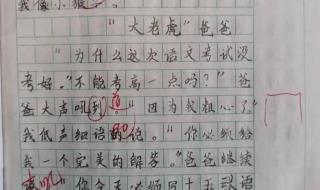 我像小猴子。
"大老虎"爸爸
"为什么这次语文考试没
考好。"不能考高一点吗？"爸
爸大声吼到道"因为我粗心了。"
我低声细语的说。"你必须给
我一个完美的解答。"爸爸继续
你今天必须写十五